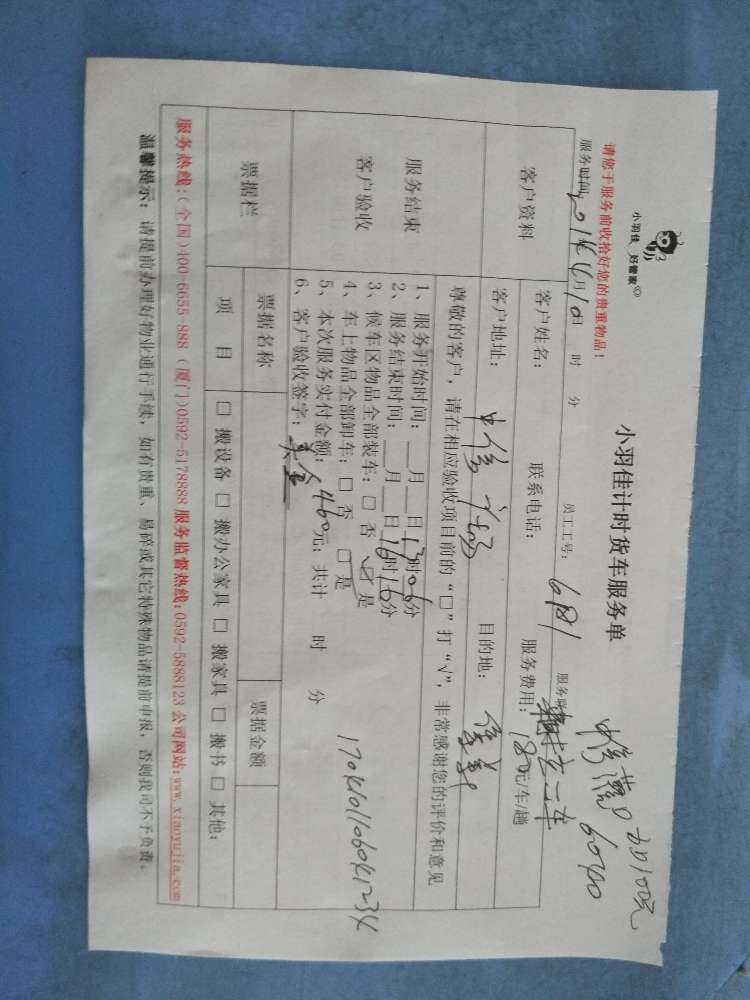 小羽佳 好管家
小羽佳计时货车服务单
加100元
6040
请您于服务前收拾好您的贵重物品！
服务时间 4月10日 时 分 员工工号：6181
客户资料 客户姓名： 联系电话： 服务费用：180元/车/趟
客户地址： 目的地：
服务结束
客户验收
尊敬的客户，请在相应验收项目前的“□”打“√”，非常感谢您的评价和意见
1、服务开始时间：__月__日13时06分
2、服务结束时间：__月__日16时16分
3、候车区物品全部装车：□ 否 ☑ 是
4、车上物品全部卸车：□ 否 □ 是
5、本次服务实付金额：460元；共计 时 分
6、客户验收签字：
票据栏 票据名称 票据金额
项 目 □ 搬设备 □ 搬办公家具 □ 搬家具 □ 搬书 □ 其他：
服务热线：(全国)400-6655-888 (厦门)0592-5178888 服务监督热线：0592-5888123 公司网站：www.xiaoyujia.com
温馨提示：请提前办理好物业通行手续，如有贵重、易碎或其它特殊物品请提前申报，否则我司不予负责。